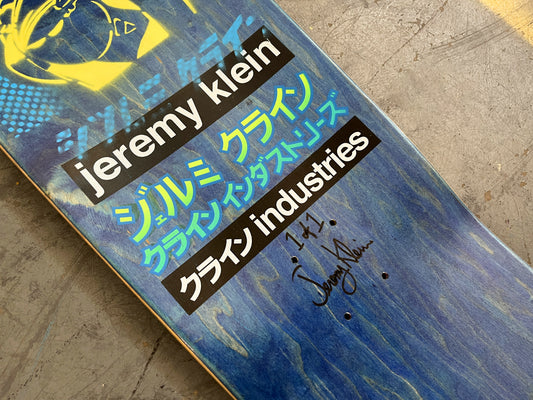 ジェルミ クライン
jeremy klein
ジェルミ クライン
クライン インダストリーズ
クライン industries
1 of 1
Jeremy Klein